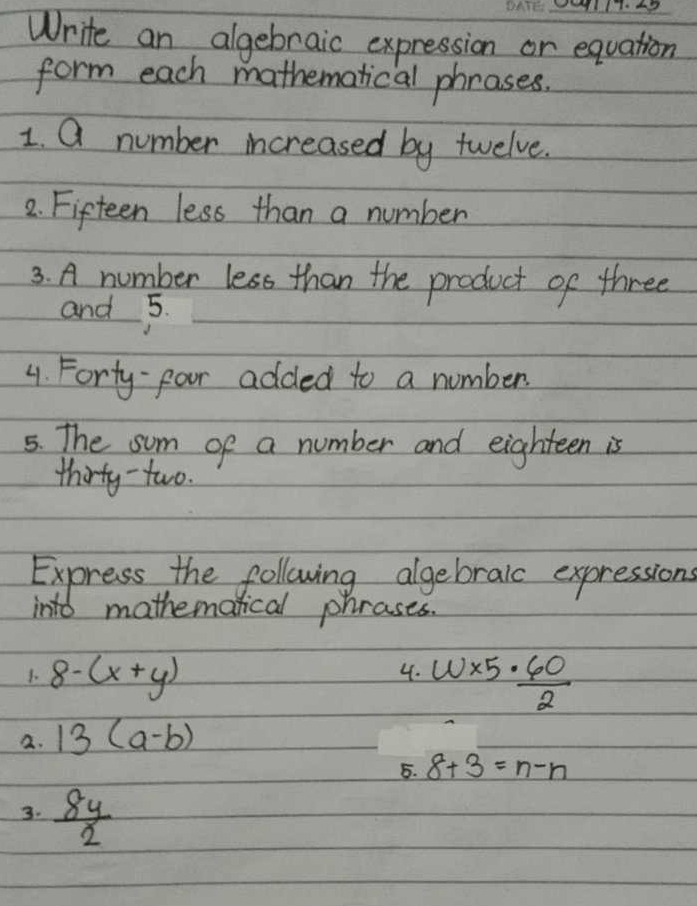 DATE:
Write an algebraic expression or equation
form each mathematical phrases.
1. A number increased by twelve.
2. Fifteen less than a number
3. A number less than the product of three
and 5.
4. Forty-four added to a number.
5. The sum of a number and eighteen is
thirty-two.
Express the following algebraic expressions
into mathematical phrases.
1. 8-(x+y)
2. 13 (a-b)
3. 8y/2
4. W×5·60/2
5. 8+3=n-n